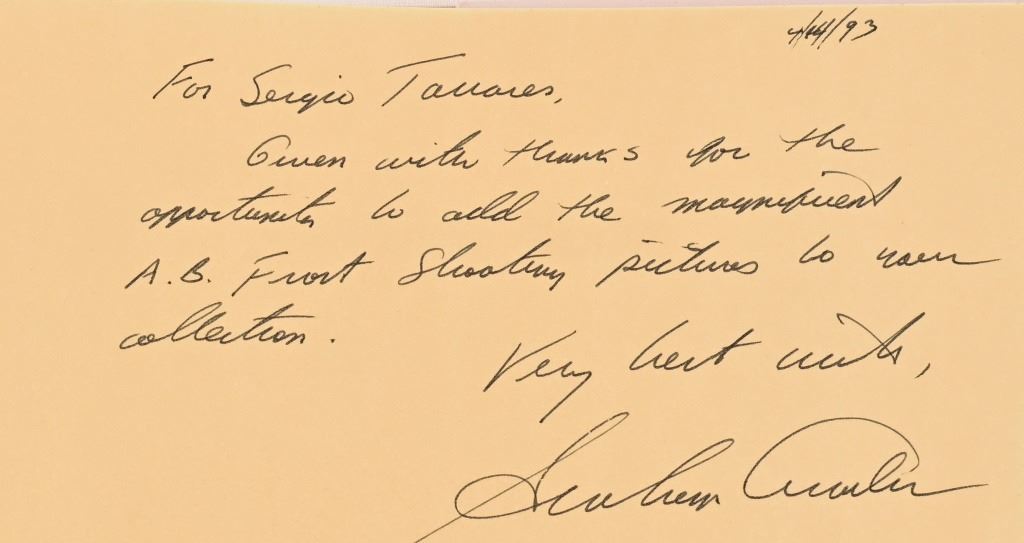 4/14/93
For Sergio Tavares,
Given with thanks for the
opportunity to add the magnificent
A.B. Frost Shooting pictures to your
collection.
Very best wishes,
Graham